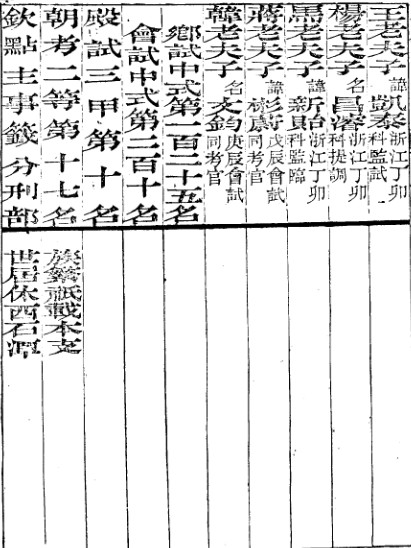 王老夫子 諱凱泰 浙江丁卯科監試
楊老夫子 名昌濬 浙江丁卯科提調
馬老夫子 諱新貽 浙江丁卯科監臨
蔣老夫子 諱彬蔚 戊辰會試同考官
韓老夫子 名文鈞 庚辰會試同考官
鄉試中式第一百二十五名
會試中式第二百十名
殿試三甲第十名
朝考二等第十七名
欽點主事籤分刑部
族繁祇載本支
世居休西石潭